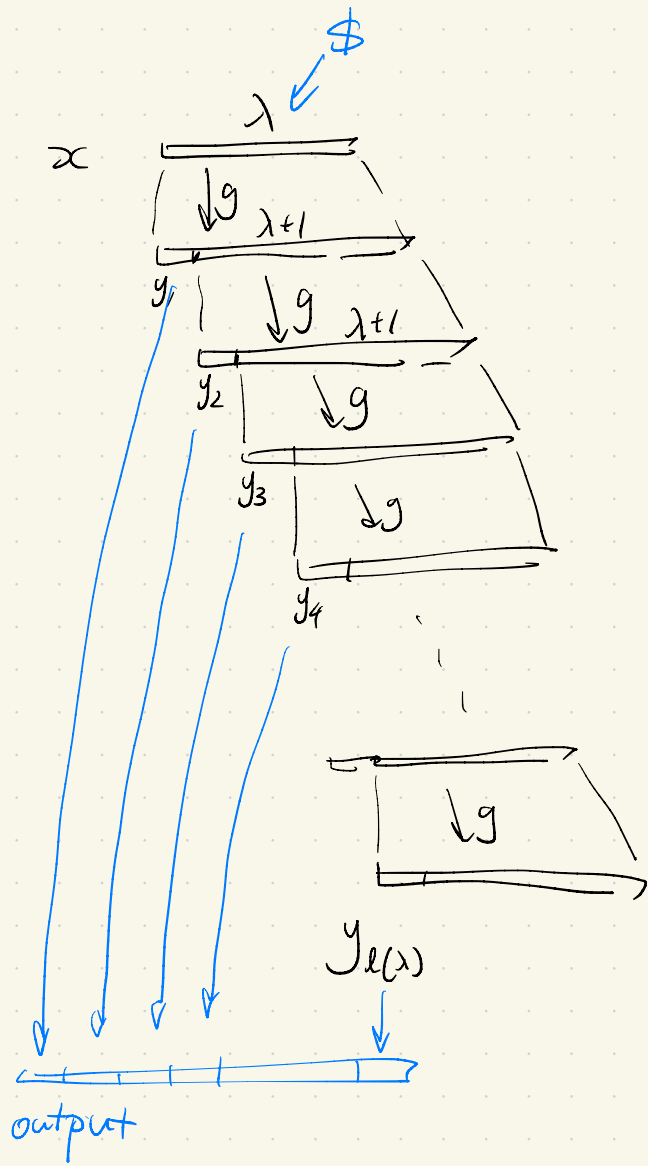 $
λ
x
g
λ+1
y₁
g
λ+1
y₂
g
y₃
g
y₄
g
y_{l(λ)}
output